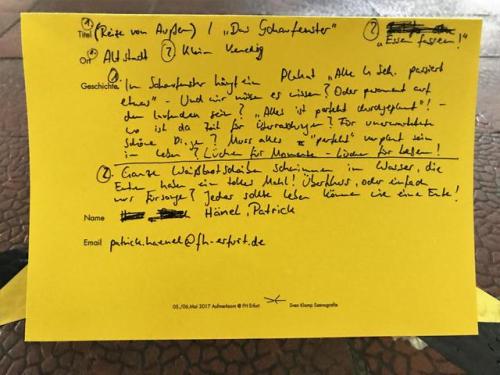 Titel ① (Reize von Außen) / "Das Schaufenster" ② "Essen fassen!"
Ort ① Altstadt ② Klein Venedig
Geschichte ① Im Schaufenster hängt ein Plakat "Alle 4 Sek. passiert
etwas" - Und wir müssen es wissen? Oder permanent auf
dem laufenden sein? "Alles ist perfekt durchgeplant"! -
wo ist da Zeit für Überraschungen? Für unerwartete
schöne Dinge? Muss alles "perfekt" verplant sein
im Leben? Lücken für Momente - Lücken für Leben!
② Ganze Weißbrotscheiben schwimmen im Wasser, die
Enten haben ein tolles Mahl! Überfluss, oder einfach
nur Fürsorge? Jeder sollte leben können wie eine Ente!
Name Hänel, Patrick
Email patrick.haenel@fh-erfurt.de
05./06. Mai 2017 Aufmerksam @ FH Erfurt Sven Klomp Szenografie